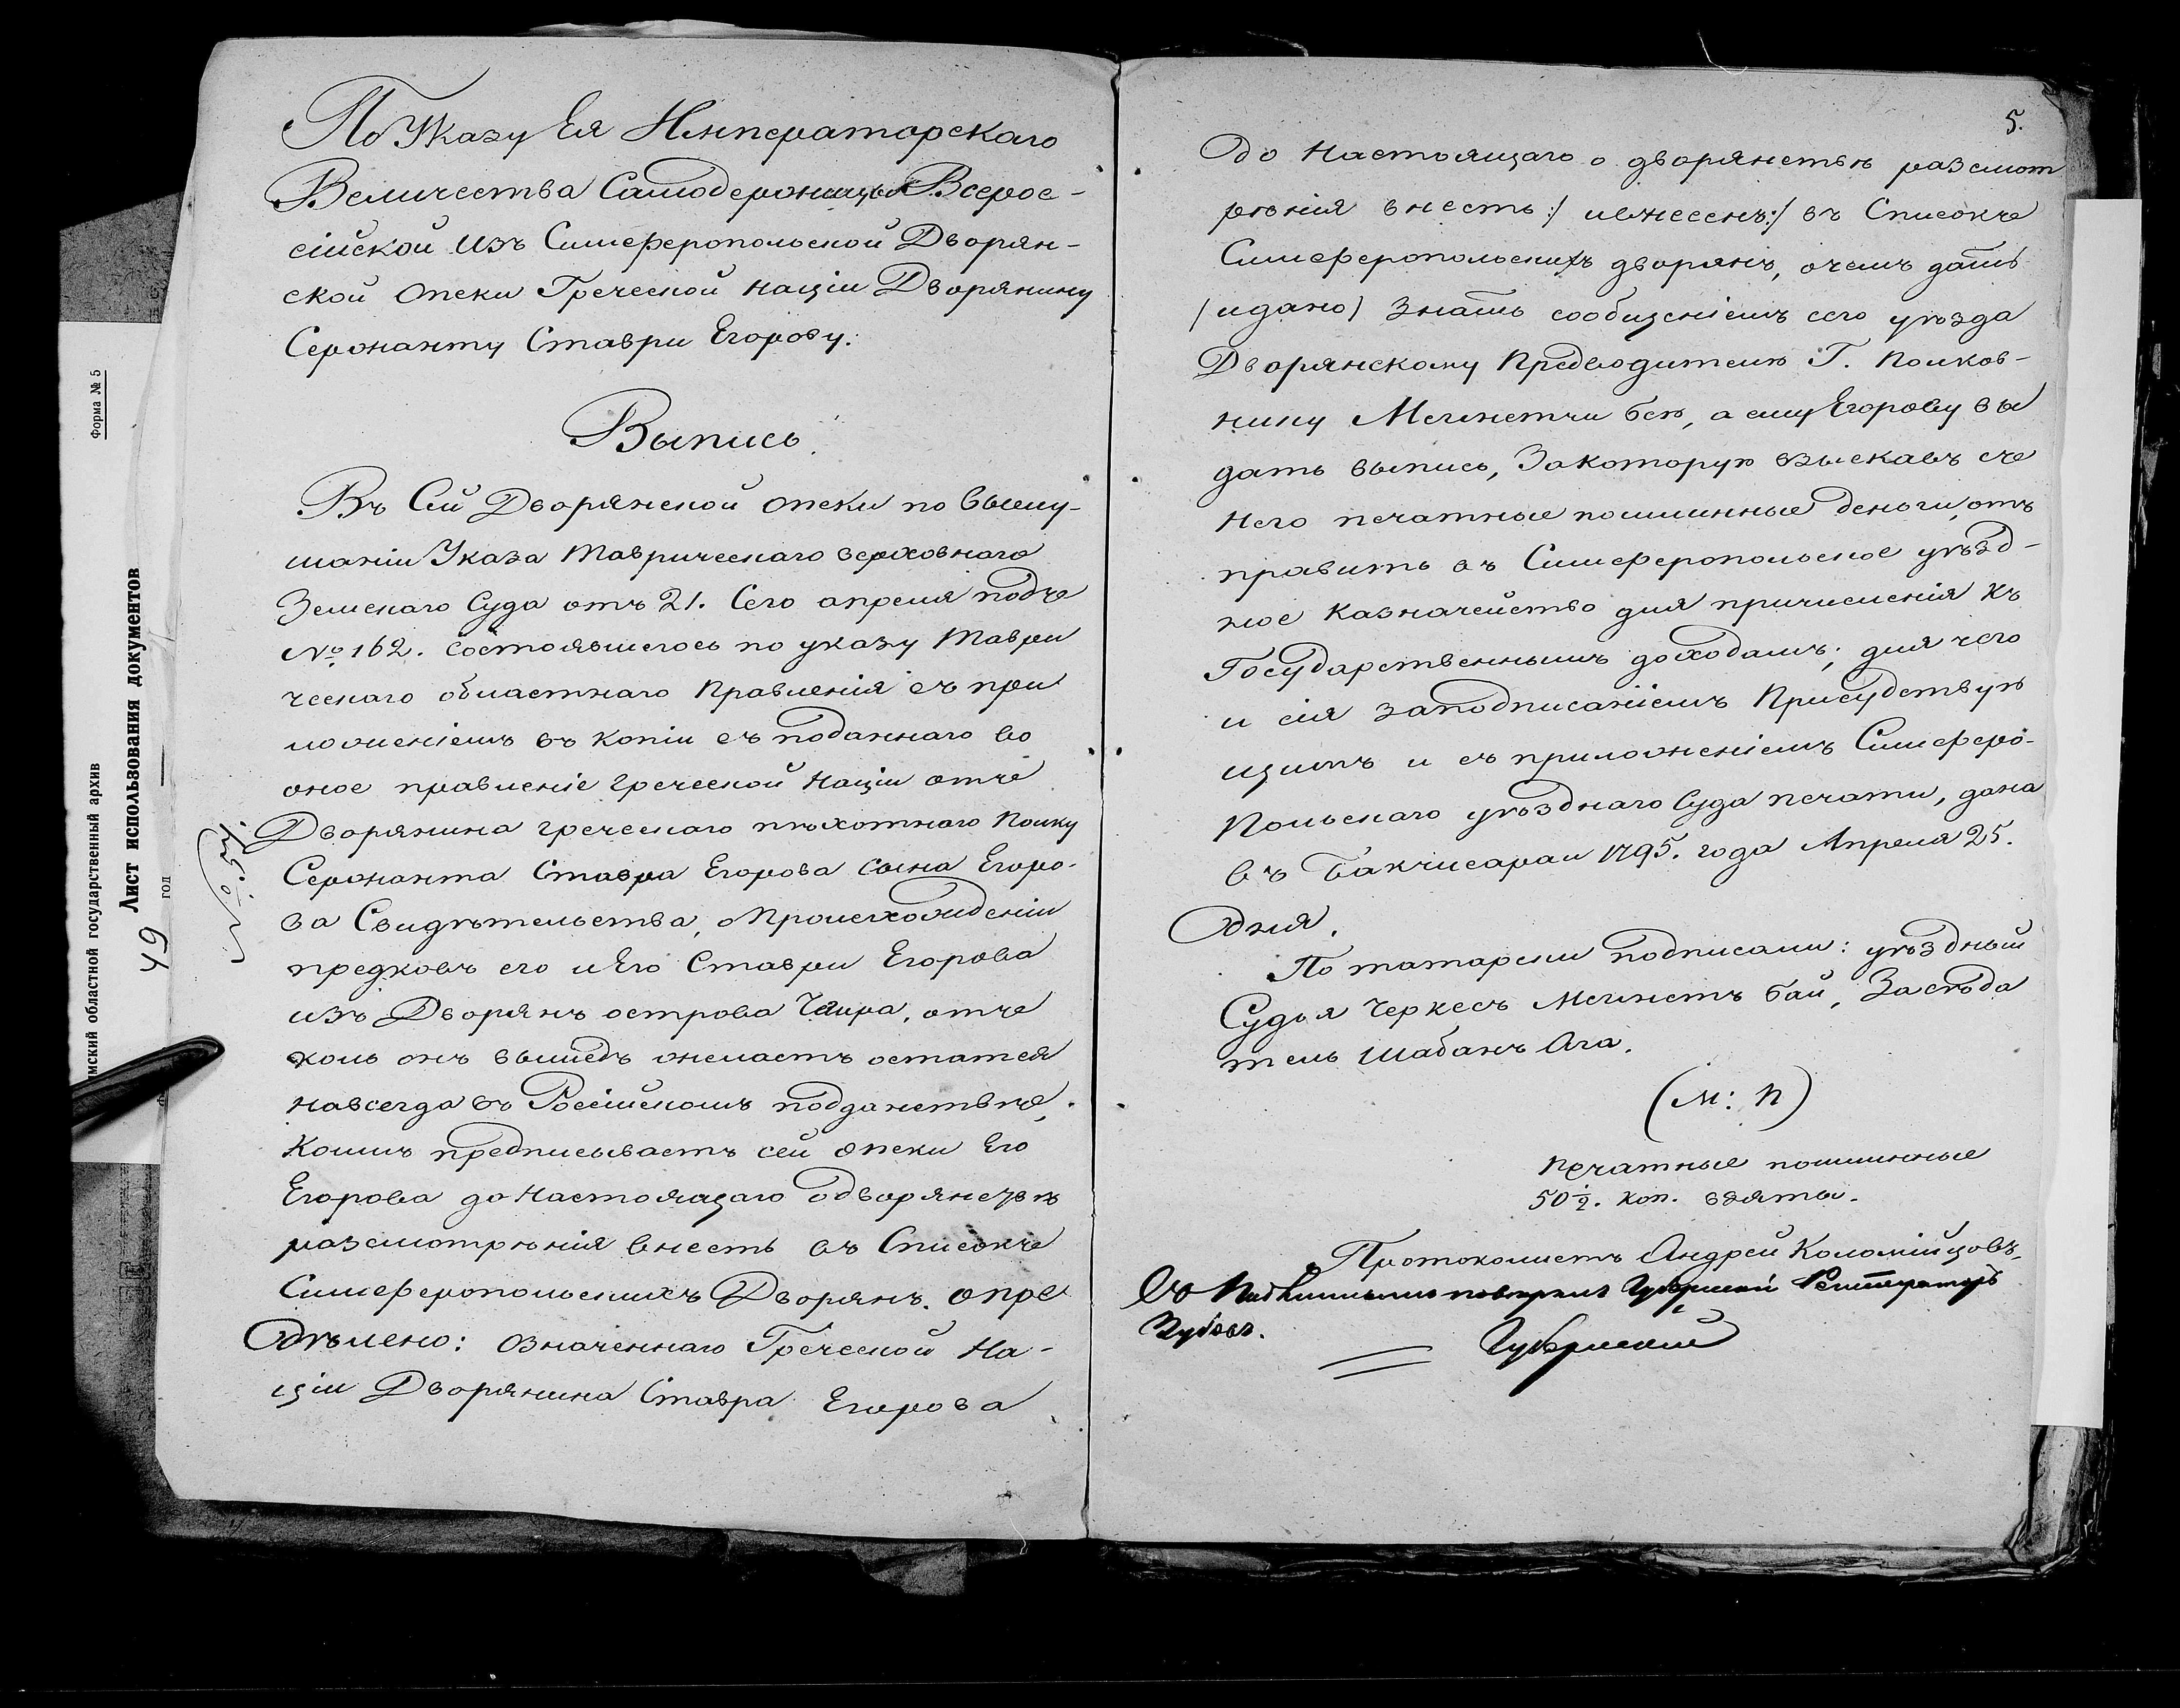 По Указу Ея Императорскаго
Величества Самодержицы Всерос-
сійской Изъ Симферопольской Дворян-
ской опеки Греческой націи Дворянину
Сержанту Ставри Егорову.
Выпись.
Въ Сей Дворянской опеки по выслу-
шаніи Указа Таврическаго верховнаго
Земскаго Суда отъ 21. Сего апреля подъ
№ 162. состоявшегось по указу Таври
ческаго областнаго Правленія съ при
ложеніемъ въ копіи съ поданнаго во
оное правленіе греческой націи отъ
Дворянина греческаго пѣхотнаго полку
Сержанта Ставра Егорова сына Егоро-
ва Свидѣтельства, о Происхожденіи
предковъ его и Его Ставри Егорова
изъ Дворянъ острова отъ
коль онъ вышедъ желаетъ остатся
навсегда въ Россійскомъ подданствѣ,
Коимъ предписываетъ сей опеки Его
Егорова до настоящаго о дворянствѣ
разсмотрѣнія внесть въ Списокъ
Симферопольскихъ Дворянъ. Опре
дѣлено: Означеннаго Греческой На-
ціи Дворянина Ставра Егорова
5.
до настоящаго о дворянствѣ разсмот
рѣнія внесть :/ и внесенъ :/ въ Списокъ
Симферопольскихъ дворянъ, о чемъ дать
/ и дано / знать сообщеніемъ сего уѣзда
Дворянскому Предводителю Г. Полков-
нику Мегметчи бею, а ему Егорову вы
дать выпись, За которую взыскавъ съ
Него печатные пошлинные деньги, от
править въ Симферопольское уѣзд-
ное Казначейство для причисленія къ
Государственнымъ доходамъ; для чего
и сія за подписаніемъ Присудствую
щихъ и съ приложеніемъ Симферо-
польскаго уѣзднаго Суда печати, дана
въ Бакчисараи 1795. года Апреля 25.
Дня.
По татарски подписали: уѣздный
Судья Черкесъ Мегметъ бай, Засѣда
тель Шабанъ Ага.
(М: П)
печатные пошлинные
50½. коп. взяты.
Протоколистъ Андрей Коломійцовъ.
Съ Губернскій Регистраторъ
Зубовъ.
Форма № 5
мский областной государственный архив
Лист использования документов
49
год